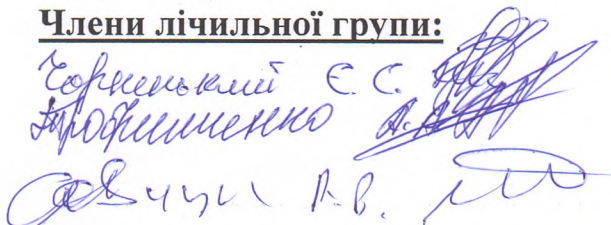 Члени лічильної групи:
Чорненький Є. С.
Трофименко А.
Савчук А. В.